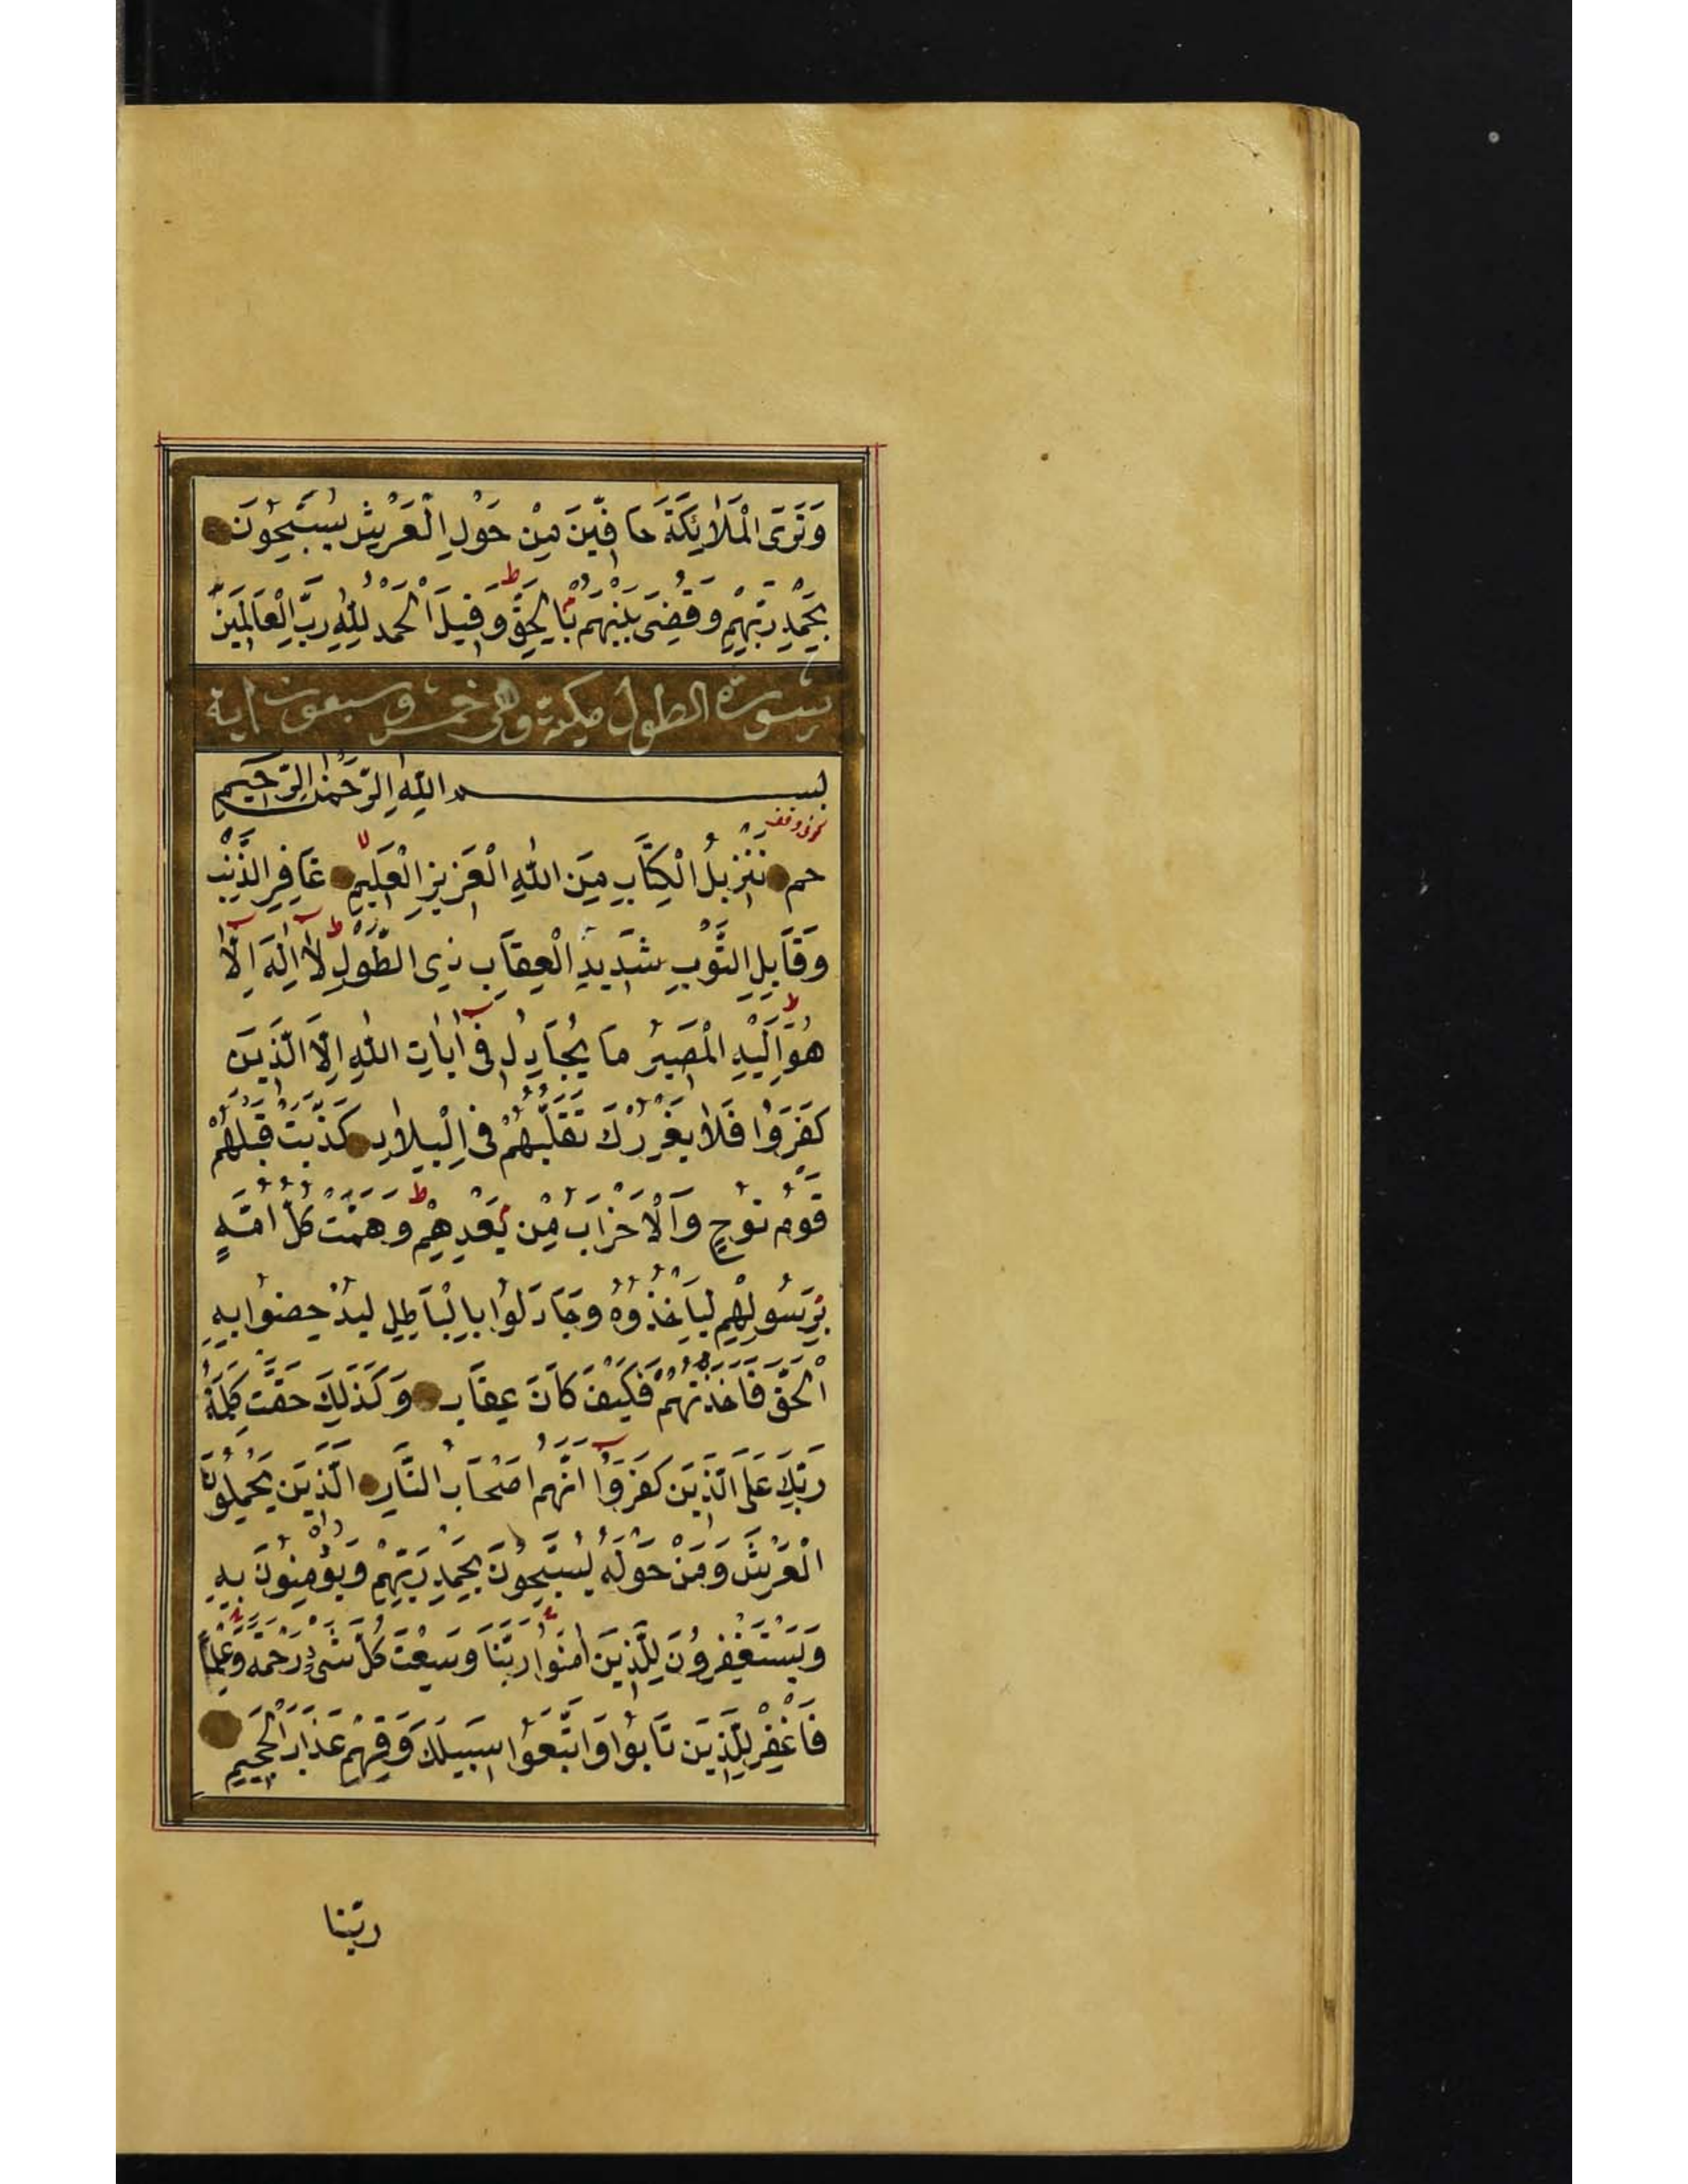 وَتَرَى الْمَلَائِكَةَ حَافِّينَ مِنْ حَوْلِ الْعَرْشِ يُسَبِّحُونَ
بِحَمْدِ رَبِّهِمْ وَقُضِيَ بَيْنَهُمْ بِالْحَقِّ وَقِيلَ الْحَمْدُ لِلّٰهِ رَبِّ الْعَالَمِينَ
سورة الطول مكية وهي خمس وسبعون اية
بسم اللّٰهِ الرَّحْمٰنِ الرَّحِيمِ
حم تَنْزِيلُ الْكِتَابِ مِنَ اللّٰهِ الْعَزِيزِ الْعَلِيمِ غَافِرِ الذَّنْبِ
وَقَابِلِ التَّوْبِ شَدِيدِ الْعِقَابِ ذِى الطَّوْلِ لَا اِلٰهَ اِلَّا
هُوَ اِلَيْهِ الْمَصِيرُ مَا يُجَادِلُ فِى اٰيَاتِ اللّٰهِ اِلَّا الَّذِينَ
كَفَرُوا فَلَا يَغْرُرْكَ تَقَلُّبُهُمْ فِى الْبِلَادِ كَذَّبَتْ قَبْلَهُمْ
قَوْمُ نُوحٍ وَالْاَحْزَابُ مِنْ بَعْدِهِمْ وَهَمَّتْ كُلُّ اُمَّةٍ
بِرَسُولِهِمْ لِيَاْخُذُوهُ وَجَادَلُوا بِالْبَاطِلِ لِيُدْحِضُوا بِهِ
الْحَقَّ فَاَخَذْتُهُمْ فَكَيْفَ كَانَ عِقَابِ وَكَذٰلِكَ حَقَّتْ كَلِمَةُ
رَبِّكَ عَلَى الَّذِينَ كَفَرُوا اَنَّهُمْ اَصْحَابُ النَّارِ الَّذِينَ يَحْمِلُونَ
الْعَرْشَ وَمَنْ حَوْلَهُ يُسَبِّحُونَ بِحَمْدِ رَبِّهِمْ وَيُؤْمِنُونَ بِهِ
وَيَسْتَغْفِرُونَ لِلَّذِينَ اٰمَنُوا رَبَّنَا وَسِعْتَ كُلَّ شَىْءٍ رَحْمَةً وَعِلْمًا
فَاغْفِرْ لِلَّذِينَ تَابُوا وَاتَّبَعُوا سَبِيلَكَ وَقِهِمْ عَذَابَ الْجَحِيمِ
ربّنا